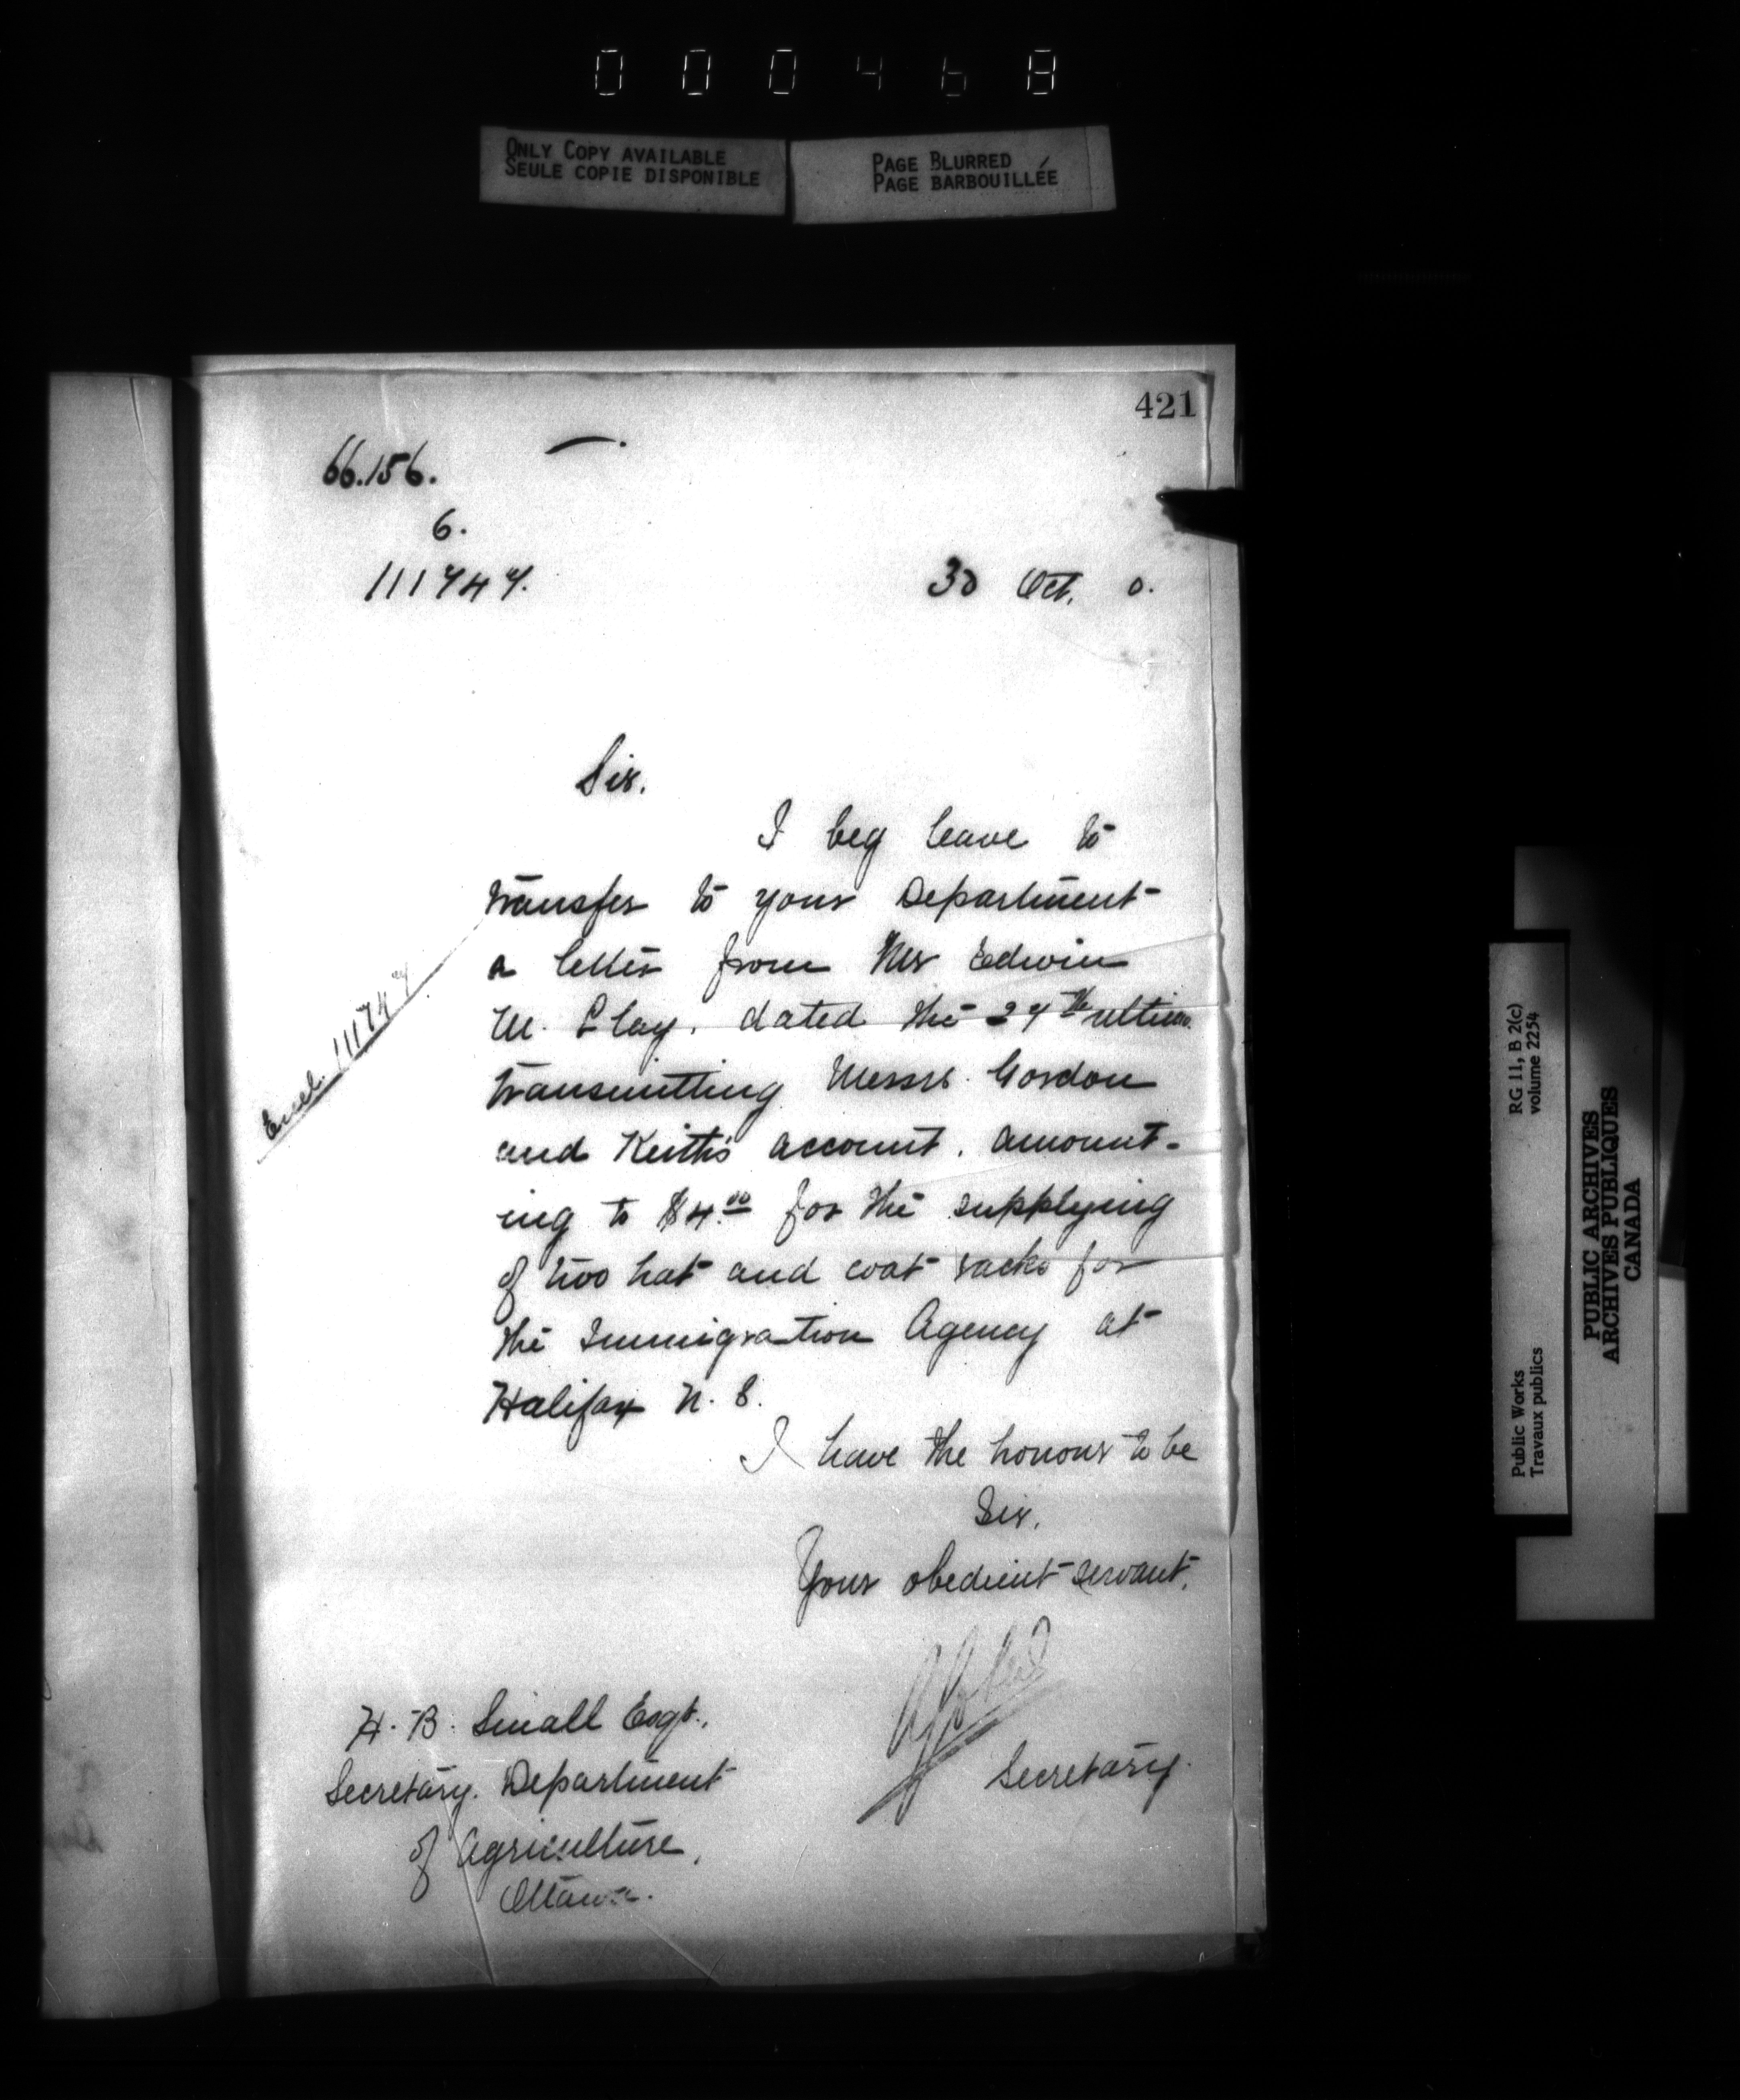 000468
ONLY COPY AVAILABLE
SEULE COPIE DISPONIBLE
PAGE BLURRED
PAGE BARBOUILLÉE
421
66.156.
6.
111747.
30 Oct. 0.
Sir.
I beg leave to
transfer to your Department
a letter from Mr Edwin
M. Clay. dated the 27th ultimo.
transmitting Messrs. Gordon
and Keith's account. amount-
ing to $4.00 for the supplying
of two hat and coat racks for
the Immigration Agency at
Halifax N. S.
Encl. 111747
I have the honour to be
Sir,
Your obedient servant.
Secretary.
H. B. Small Esqr.,
Secretary. Department
of Agriculture,
Ottawa.
RG 11, B 2(c)
volume 2254
Public Works
Travaux publics
PUBLIC ARCHIVES
ARCHIVES PUBLIQUES
CANADA